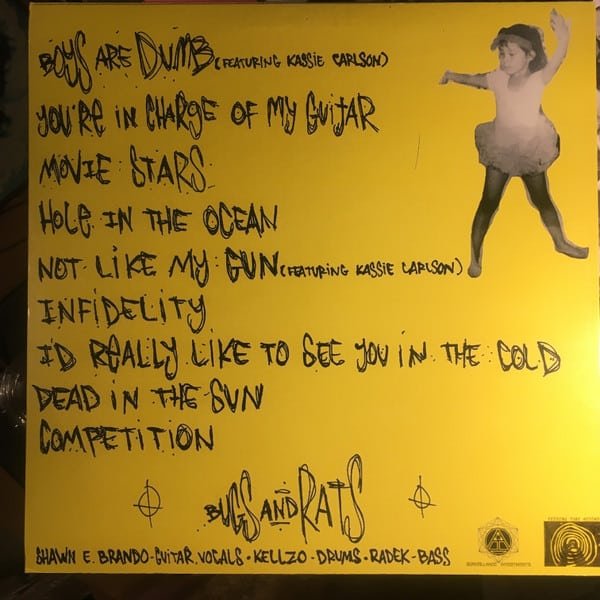 BOYS ARE DUMB (FEATURING KASSIE CARLSON)
YOU'RE IN CHARGE OF MY GUITAR
MOVIE STARS
HOLE IN THE OCEAN
NOT LIKE MY GUN (FEATURING KASSIE CARLSON)
INFIDELITY
I'D REALLY LIKE TO SEE YOU IN THE COLD
DEAD IN THE SUN
COMPETITION
BUGS AND RATS
SHAWN E. BRANDO-GUITAR, VOCALS • KELLZO-DRUMS • RADEK-BASS
SURVEILLANCE INVESTMENTS